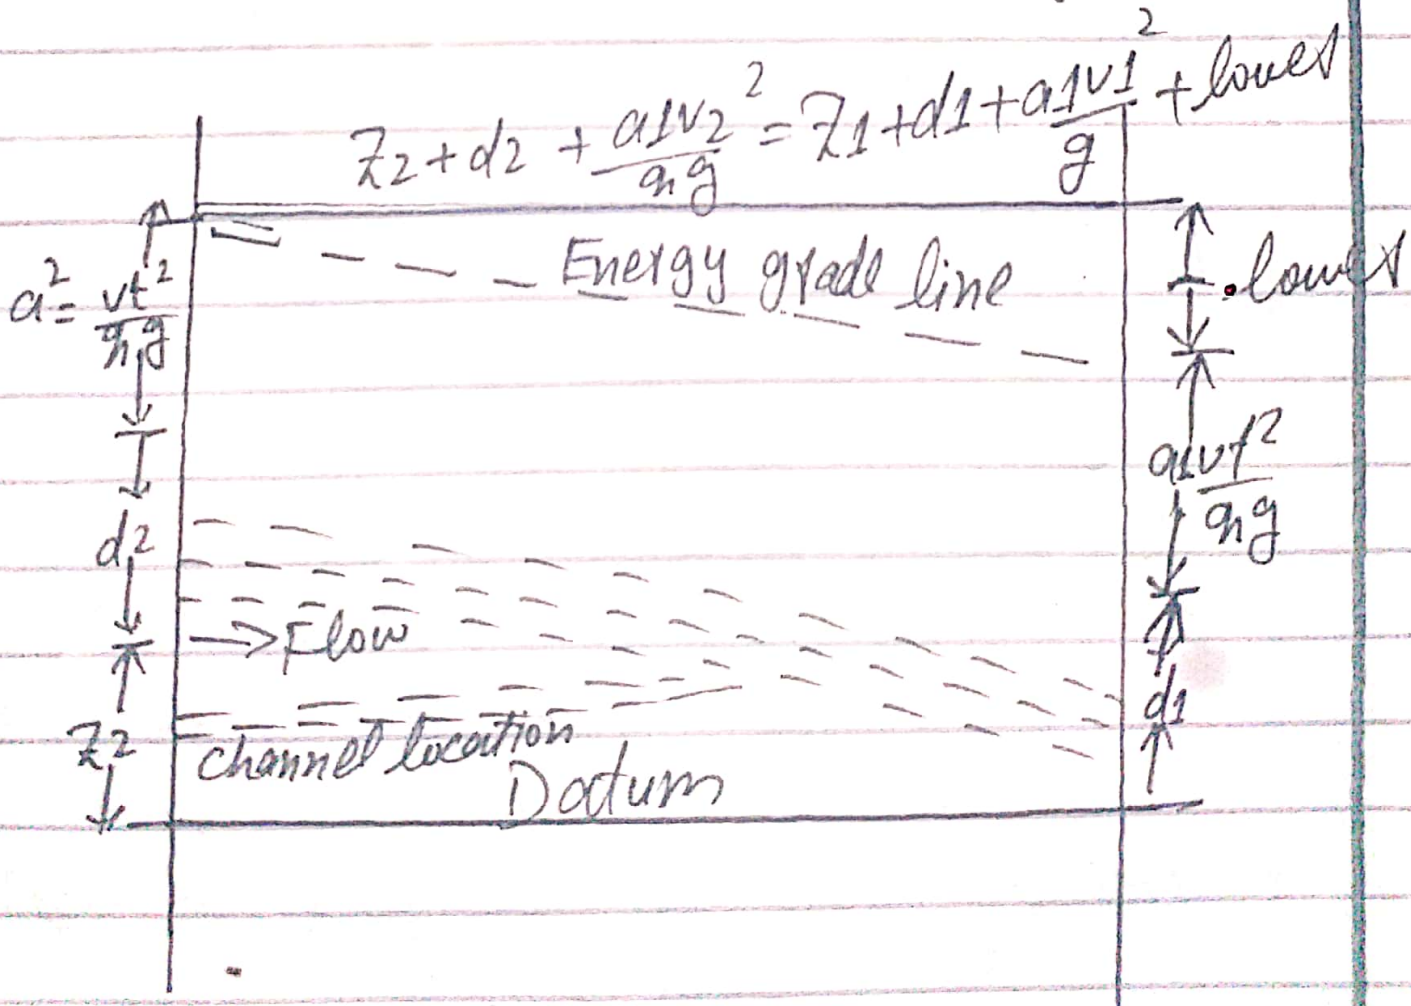 Z2+d2 + a1v2²/2g = Z1+d1+a1v1²/g + lowes
Energy grade line
lowes
a²= vt²/2g
a1vt²/2g
d2
Flow
d1
Z2
channel location
Datum